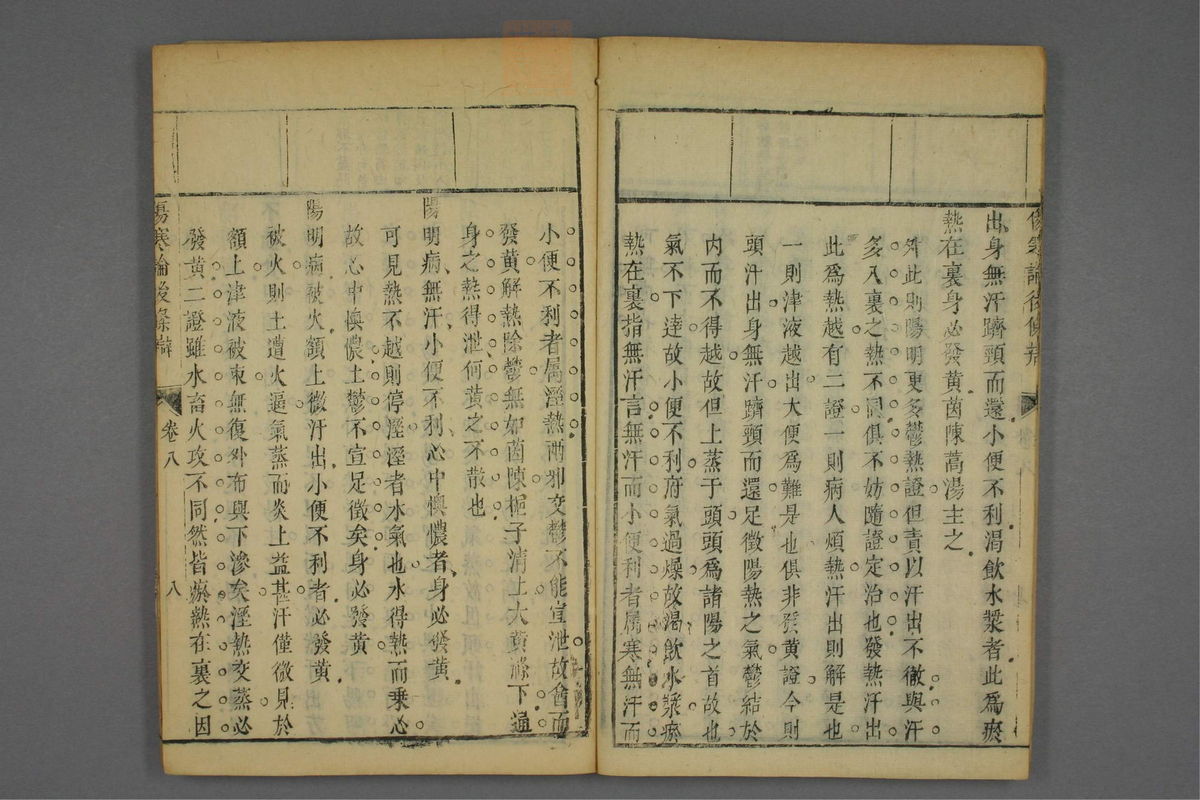 傷寒論後條辨
出身無汗躋頸而還小便不利渴飲水漿者此為瘀
熱在裏身必發黃茵陳蒿湯主之
舛此則陽明更多鬱熱證但責以汗出不徹與汗
多入裏之熱不同俱不妨隨證定治也發熱汗出
此為熱越有二證一則病人煩熱汗出則解是也
一則津液越出大便為難是也俱非發黃證今則
頭汗出身無汗躋頸而還足徵陽熱之氣鬱結於
內而不得越故但上蒸于頭頭為諸陽之首故也
氣不下達故小便不利府氣過燥故渴飲水漿瘀
熱在裏指無汗言無汗而小便利者屬寒無汗而
小便不利者屬溼熱兩邪交鬱不能宣泄故會而
發黃解熱除鬱無如茵陳梔子清上大黃滌下通
身之熱得泄何黃之不散也
陽明病無汗小便不利心中懊憹者身必發黃
可見熱不越則停溼溼者水氣也水得熱而乘心
故心中懊憹土鬱不宣足徵矣身必發黃
陽明病被火額上微汗出小便不利者必發黃
被火則土遭火逼氣蒸而炎上益甚汗僅微見於
額上津液被束無復外布與下滲矣溼熱交蒸必
發黃二證雖水畜火攻不同然皆瘀熱在裏之因
傷寒論後條辨 卷八 八